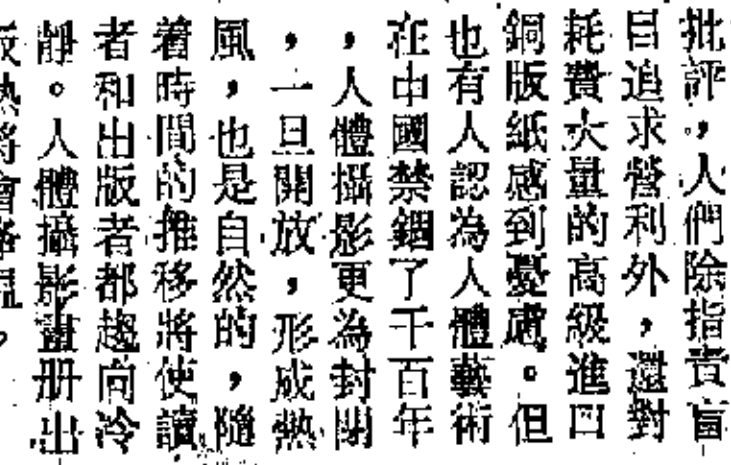 批評，人們除指責盲
目追求營利外，還對
耗費大量的高級進口
銅版紙感到憂慮。但
也有人認為人體藝術
在中國禁錮了千百年
，人體攝影更為封閉
，一旦開放，形成熱
風，也是自然的，隨
着時間的推移將使讀
者和出版者都趨向冷
靜。人體攝影畫册出
版熱將會